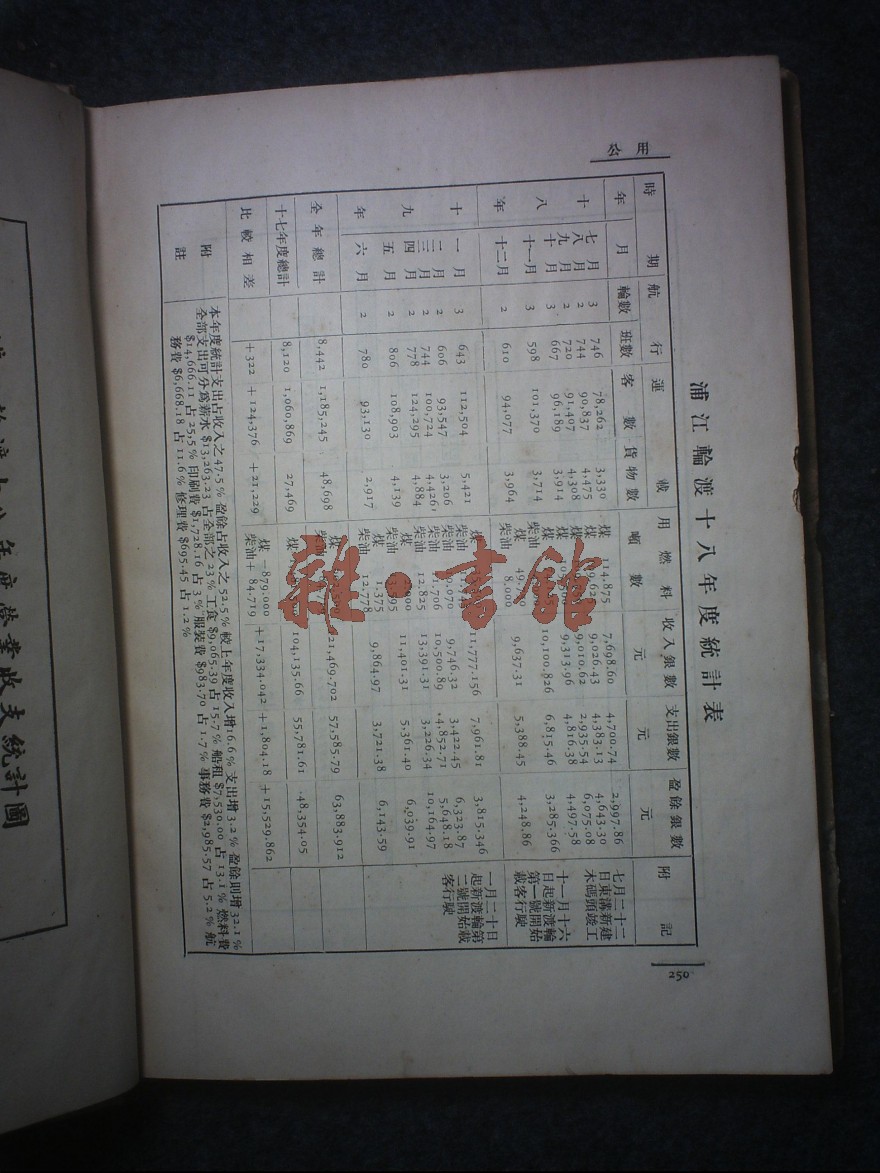 公用
250
浦江輪渡十八年度統計表
時期 航行 運載 用燃料 收入銀數 支出銀數 盈餘銀數 附記
年 月 輪數 班數 客數 貨物數 噸數 元 元 元
十八年
七月 3 746 78,262 3,330 煤 114.875 7,698.60 4,700.74 2,997.86
八月 2 744 90,837 4,475 煤 9,026.43 4,383.13 4,643.30
九月 2 720 91,407 4,308 煤 9,010.62 2,935.54 6,075.08
十月 3 667 96,189 3,914 煤 9,313.96 4,816.38 4,497.58
十一月 3 598 101,370 3,714 煤 柴油 10,100.826 6,815.46 3,285.366
十二月 2 610 94,077 3,964 煤 柴油 8.000 9,637.31 5,388.45 4,248.86
十九年
一月 3 643 112,504 5,421 煤 柴油 11,777.156 7,961.81 3,815.346
二月 2 606 93,547 3,206 柴油 9,746.32 3,422.45 6,323.87
三月 2 744 100,724 4,426 柴油 10,500.89 4,852.71 5,648.18
四月 2 778 124,295 4,884 柴油 12.825 13,391.31 3,226.34 10,164.97
五月 2 806 108,903 4,139 煤 柴油 11,401.31 5,361.40 6,039.91
六月 2 780 93,130 2,917 煤 1.375 柴油 12.778 9,864.97 3,721.38 6,143.59
全年總計 8,442 1,185,245 48,698 煤 柴油 121,469.702 57,585.79 63,883.912
十七年度總計 8,120 1,060,869 27,469 煤 104,135.66 55,781.61 48,354.05
比較相差 +322 +124,376 +21,229 煤 −879.000 柴油+ 84.719 +17,334.042 +1,804.18 +15,529.862
七月二十二
日東溝新建
木碼頭竣工
十一月十六
日起新渡輪
第一號開始
載客行駛
一月二十日
起新渡輪第
二號開始載
客行駛
附註
本年度統計支出占收入之47.5％盈餘占收入之52.5％較上年度收入增16.6％支出增3.2％盈餘則增32.1％
全部支出可分爲薪水$13,263.23占全部之23％工食$9,065.39占15.7％船租$7,530.00占13.1％燃料費
$14,666.11占25.5％印刷費$1,728.16占3％服裝費$983.70占1.7％事務費$2,985.57占5.2％航
務費$6,668.18占11.6％修理費$695.45占1.2％
渡十八年度營業收支統計圖